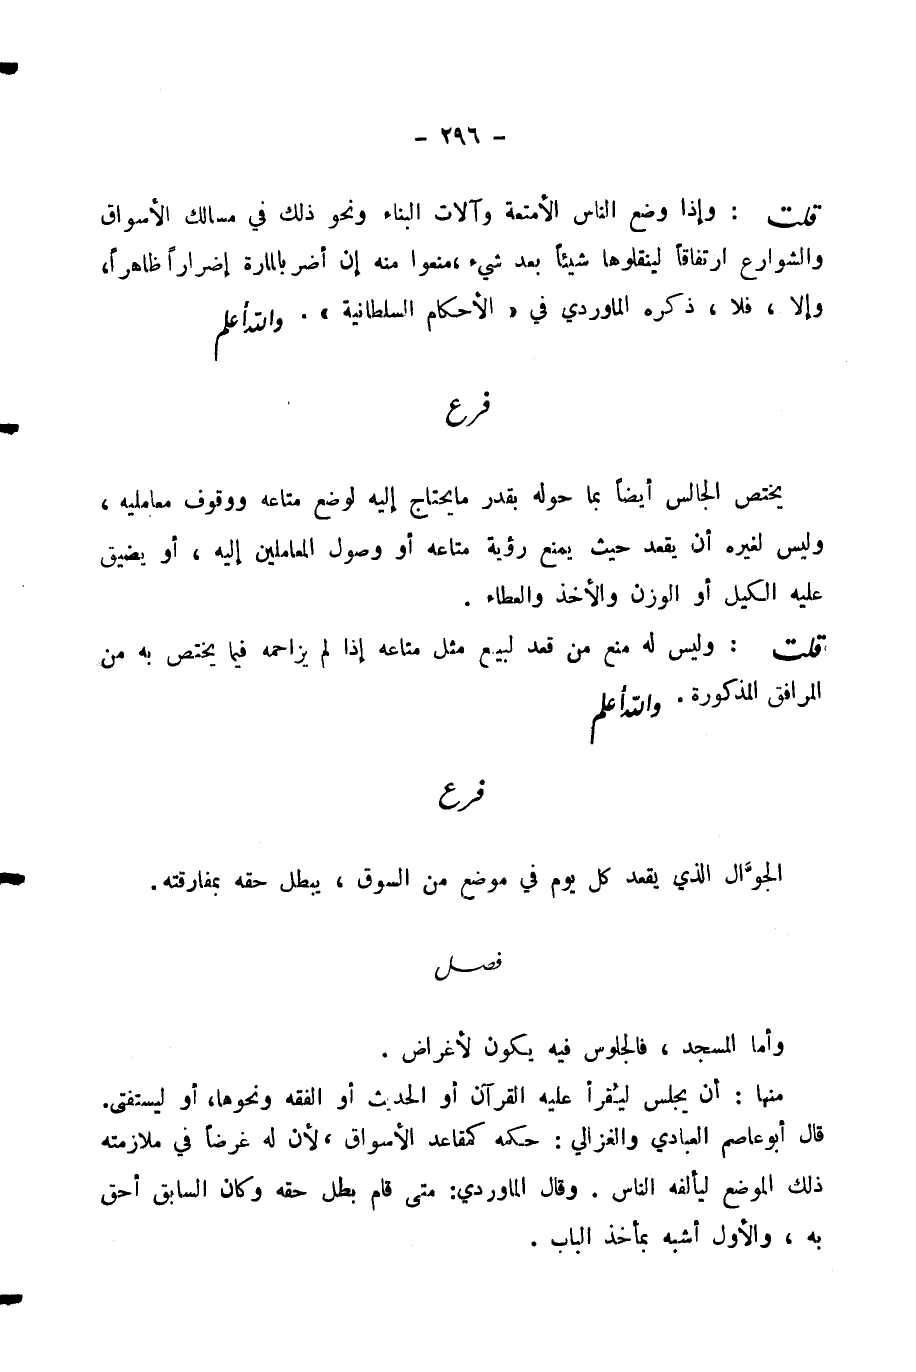 - ٢٩٦ -
قلت : وإذا وضع الناس الأمتعة وآلات البناء ونحو ذلك في مسالك الأسواق
والشوارع ارتفاقاً لينقلوها شيئاً بعد شيء ،منعوا منه إن أضر بالمارة إضراراً ظاهراً،
وإلا ، فلا ، ذكره الماوردي في « الأحكام السلطانية » . والله أعلم
فرع
يختص الجالس أيضاً بما حوله بقدر مايحتاج إليه لوضع متاعه ووقوف معامليه ،
وليس لغيره أن يقعد حيث يمنع رؤية متاعه أو وصول المعاملين إليه ، أو يضيق
عليه الكيل أو الوزن والأخذ والعطاء .
قلت : وليس له منع من قعد لبيع مثل متاعه إذا لم يزاحمه فيما يختص به من
المرافق المذكورة . والله أعلم
فرع
الجوَّال الذي يقعد كل يوم في موضع من السوق ، يبطل حقه بمفارقته .
فصل
وأما المسجد ، فالجلوس فيه يكون لأغراض .
منها : أن يجلس ليُقرأ عليه القرآن أو الحديث أو الفقه ونحوها، أو ليستفتى.
قال أبوعاصم العبادي والغزالي : حكمه كمقاعد الأسواق ،لأن له غرضاً في ملازمته
ذلك الموضع ليألفه الناس . وقال الماوردي: متى قام بطل حقه وكان السابق أحق
به ، والأول أشبه بمأخذ الباب .